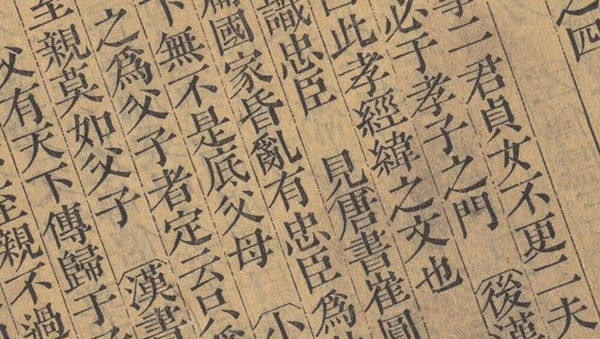 之四
二君貞女不更二夫
必于孝子之門〔後漢
此孝經緯之文也
識忠臣　見唐書崔圓
國家昏亂有忠臣爲
下無不是底父母〔小
之爲父子者定云只
至親莫如父子〔漢書
父有天下傳歸于
至親不過